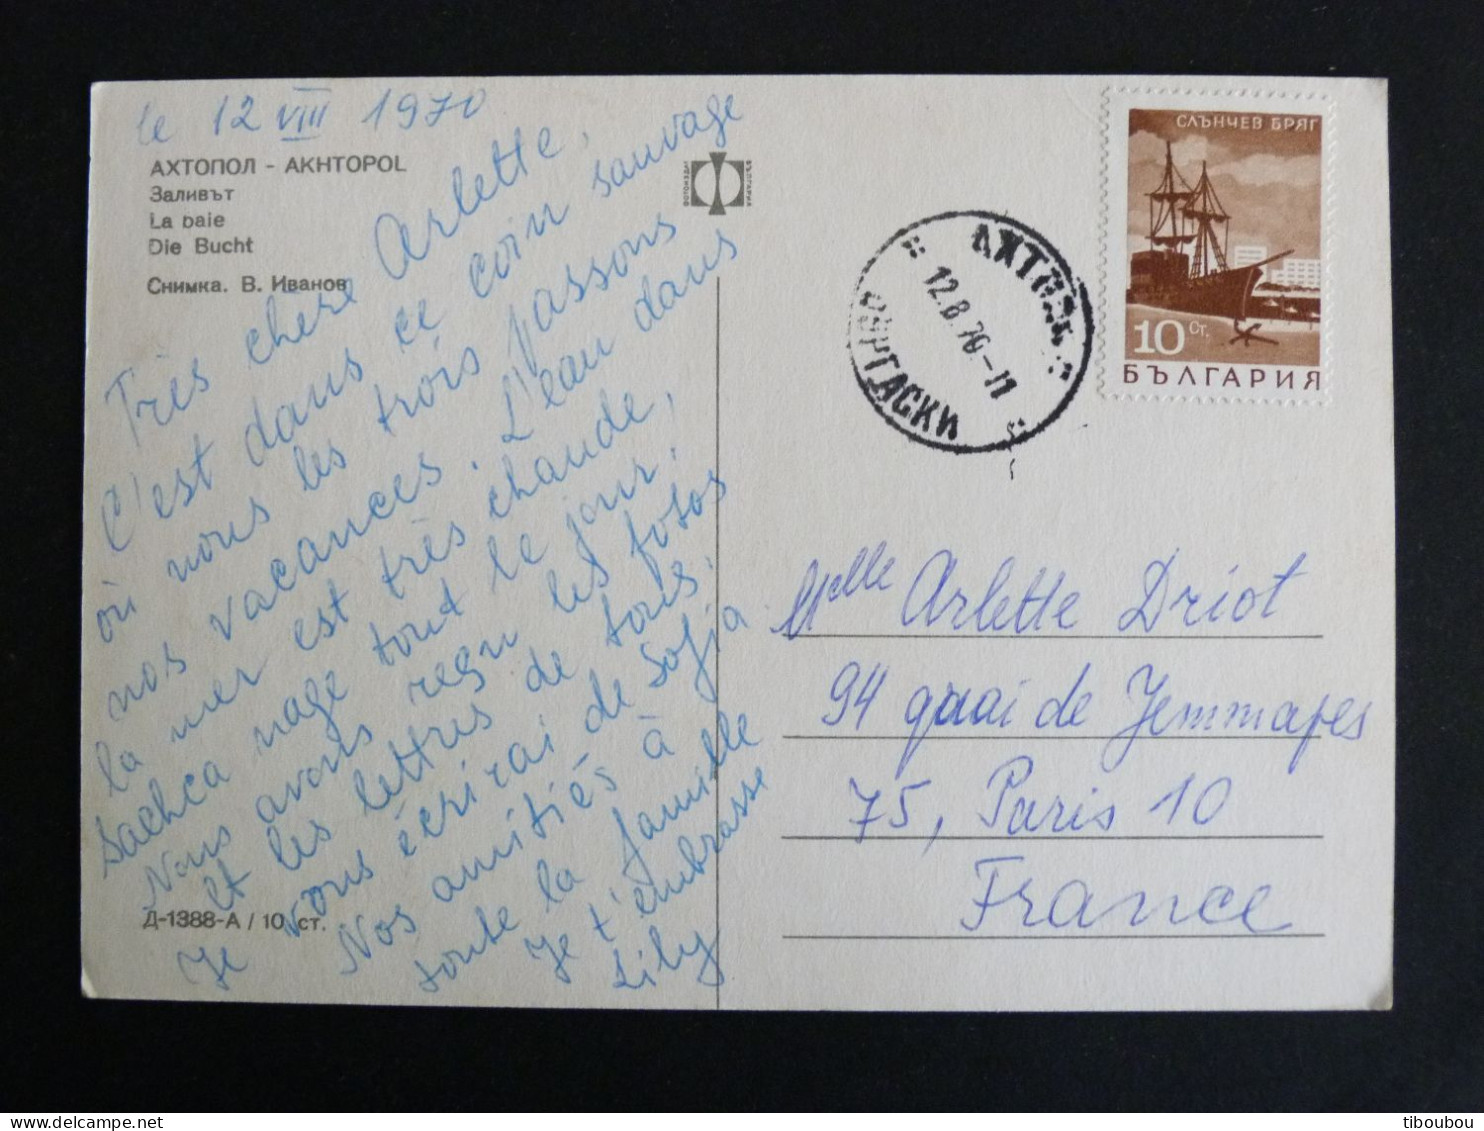 le 12 VIII 1970
АХТОПОЛ - AKHTOPOL
Заливът
La baie
Die Bucht
Снимка. В. Иванов
Très chère Arlette,
C'est dans ce coin sauvage
où nous les trois passons
nos vacances. L'eau dans
la mer est très chaude,
Sachca nage tout le jour.
Nous avons reçu les fotos
et les lettres de tous.
Je vous écrirai de Sofja
Nos amitiés à
toute la famille
Je t'embrasse
Lily
Д-1388-А / 10 ст.
ФОТОИЗДАТ
БЪЛГАРИЯ
СЛЪНЧЕВ БРЯГ
10 СТ.
БЪЛГАРИЯ
12.8.70-11
Melle Arlette Driot
94 quai de Jemmapes
75, Paris 10
France
tiboubou